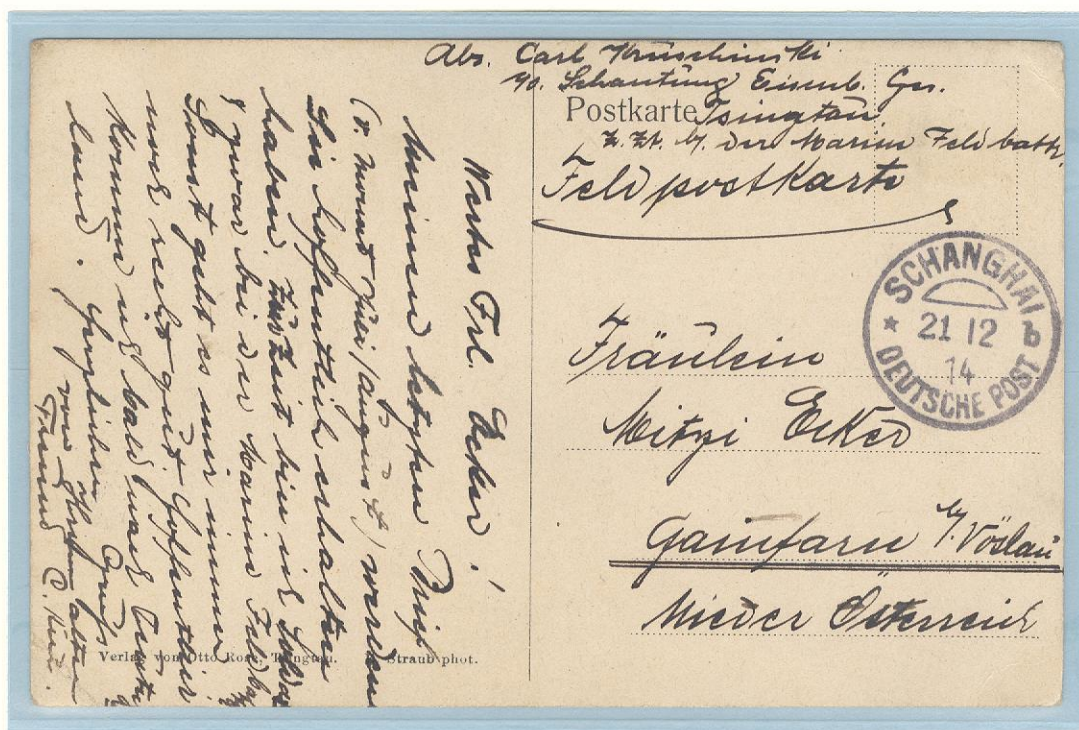 Abs. Carl Kruschinski
p/o. Schantung Eisenb. Ges.
Postkarte Tsingtau
z. Zt. b/ der Marine Feldbattr.
Feldpostkarte
SCHANGHAI b
21 12
14
DEUTSCHE POST
Fräulein
Mitzi Ecker
Gainfarn b/ Vöslau
Nieder Österreich
Wertes Frl. Ecker!
Meinen letzten Brief
(v. Monat Juli/August) werden
Sie hoffentlich erhalten
haben. Zur Zeit bin ich
zwar bei der Marine Feld
Sonst geht es mir immer
noch recht gut. Hoffentlich
komme ich bald nach
land. Herzlichen Gruß
von Ihrem alten
Freund C.
Verlag von Otto Rose, Tsingtau. Straub phot.